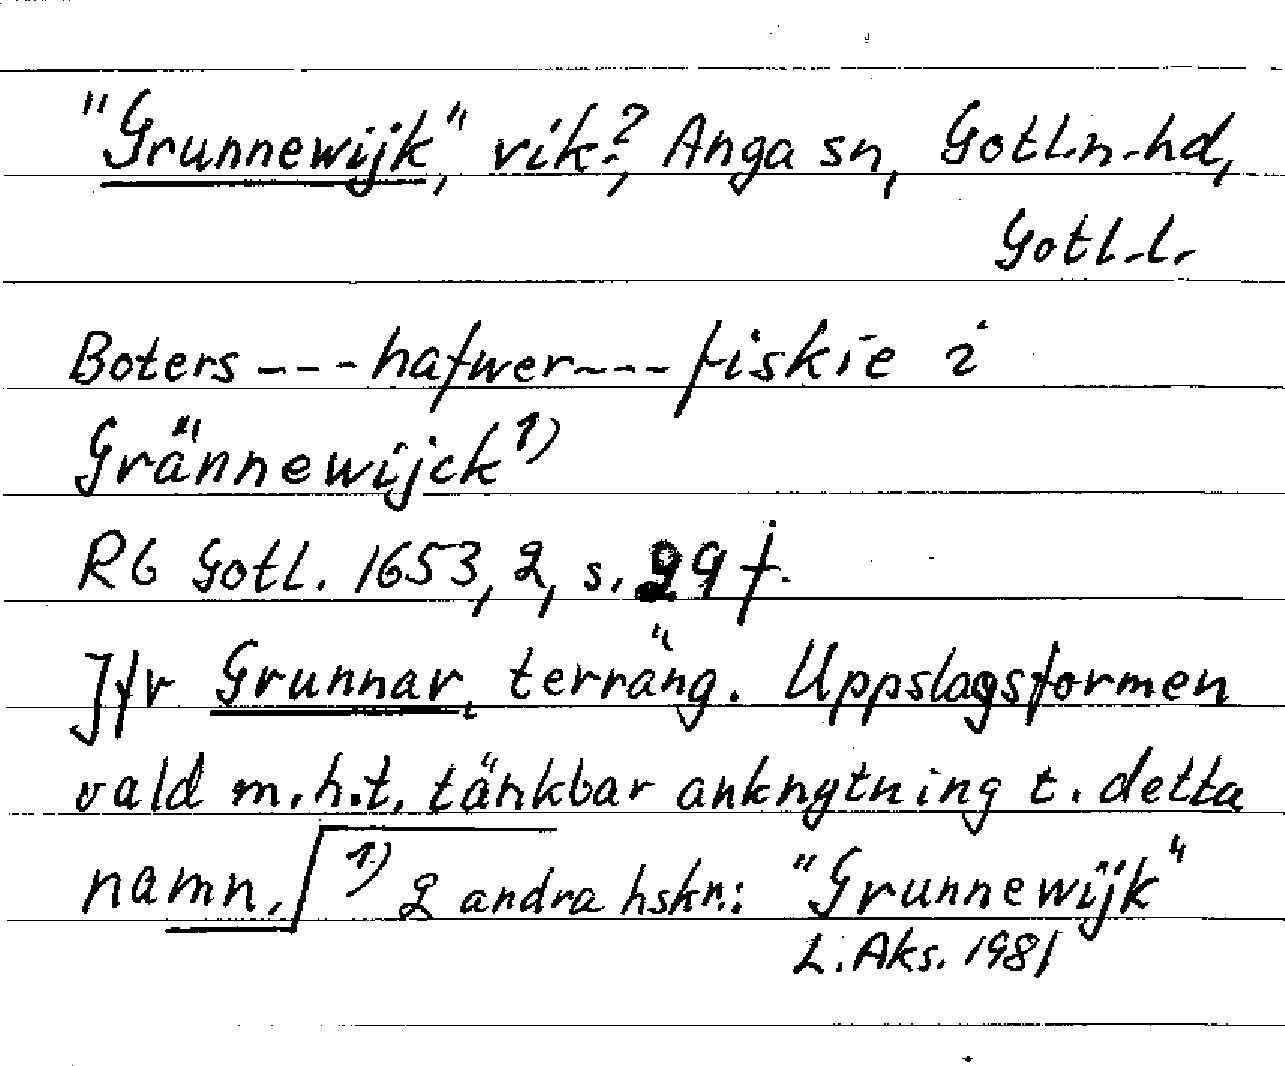 "Grunnewijk", vik?, Anga sn, Gotl.n.hd,
Gotl.l.
Boters --- hafwer --- fiskie i
Grännewijck 1)
RB Gotl. 1653, 2, s. 29 f.
Jfr Grunnar, terräng. Uppslagsformen
vald m.h.t. tänkbar anknytning t. detta
namn. 1) 2 andra hskr.: "Grunnewijk"
L. Aks. 1981